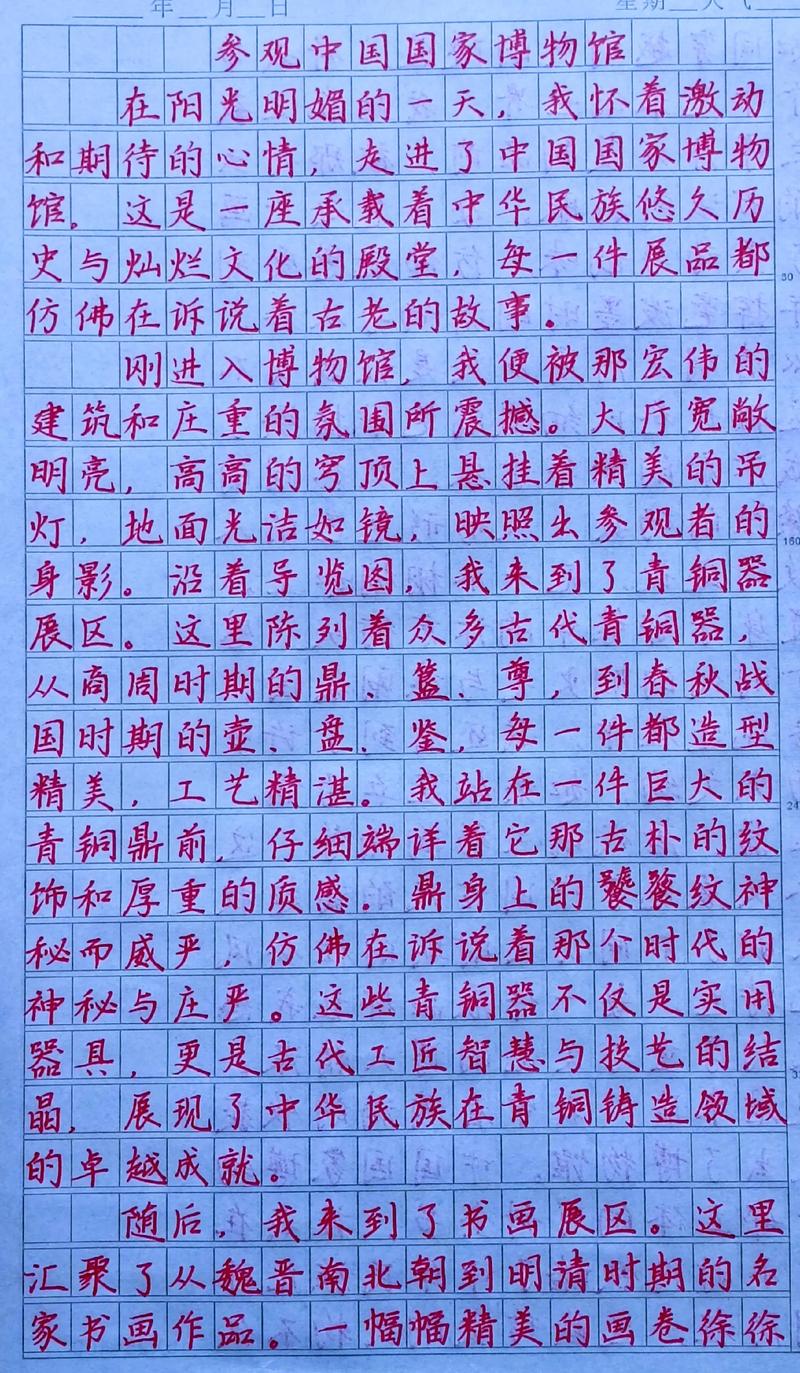 年 月 日 星期 天气
参观中国国家博物馆
在阳光明媚的一天，我怀着激动
和期待的心情，走进了中国国家博物
馆。这是一座承载着中华民族悠久历
史与灿烂文化的殿堂，每一件展品都
仿佛在诉说着古老的故事。
刚进入博物馆，我便被那宏伟的
建筑和庄重的氛围所震撼。大厅宽敞
明亮，高高的穹顶上悬挂着精美的吊
灯，地面光洁如镜，映照出参观者的
身影。沿着导览图，我来到了青铜器
展区。这里陈列着众多古代青铜器，
从商周时期的鼎、簋、尊，到春秋战
国时期的壶、盘、鉴，每一件都造型
精美，工艺精湛。我站在一件巨大的
青铜鼎前，仔细端详着它那古朴的纹
饰和厚重的质感。鼎身上的饕餮纹神
秘而威严，仿佛在诉说着那个时代的
神秘与庄严。这些青铜器不仅是实用
器具，更是古代工匠智慧与技艺的结
晶，展现了中华民族在青铜铸造领域
的卓越成就。
随后，我来到了书画展区。这里
汇聚了从魏晋南北朝到明清时期的名
家书画作品。一幅幅精美的画卷徐徐